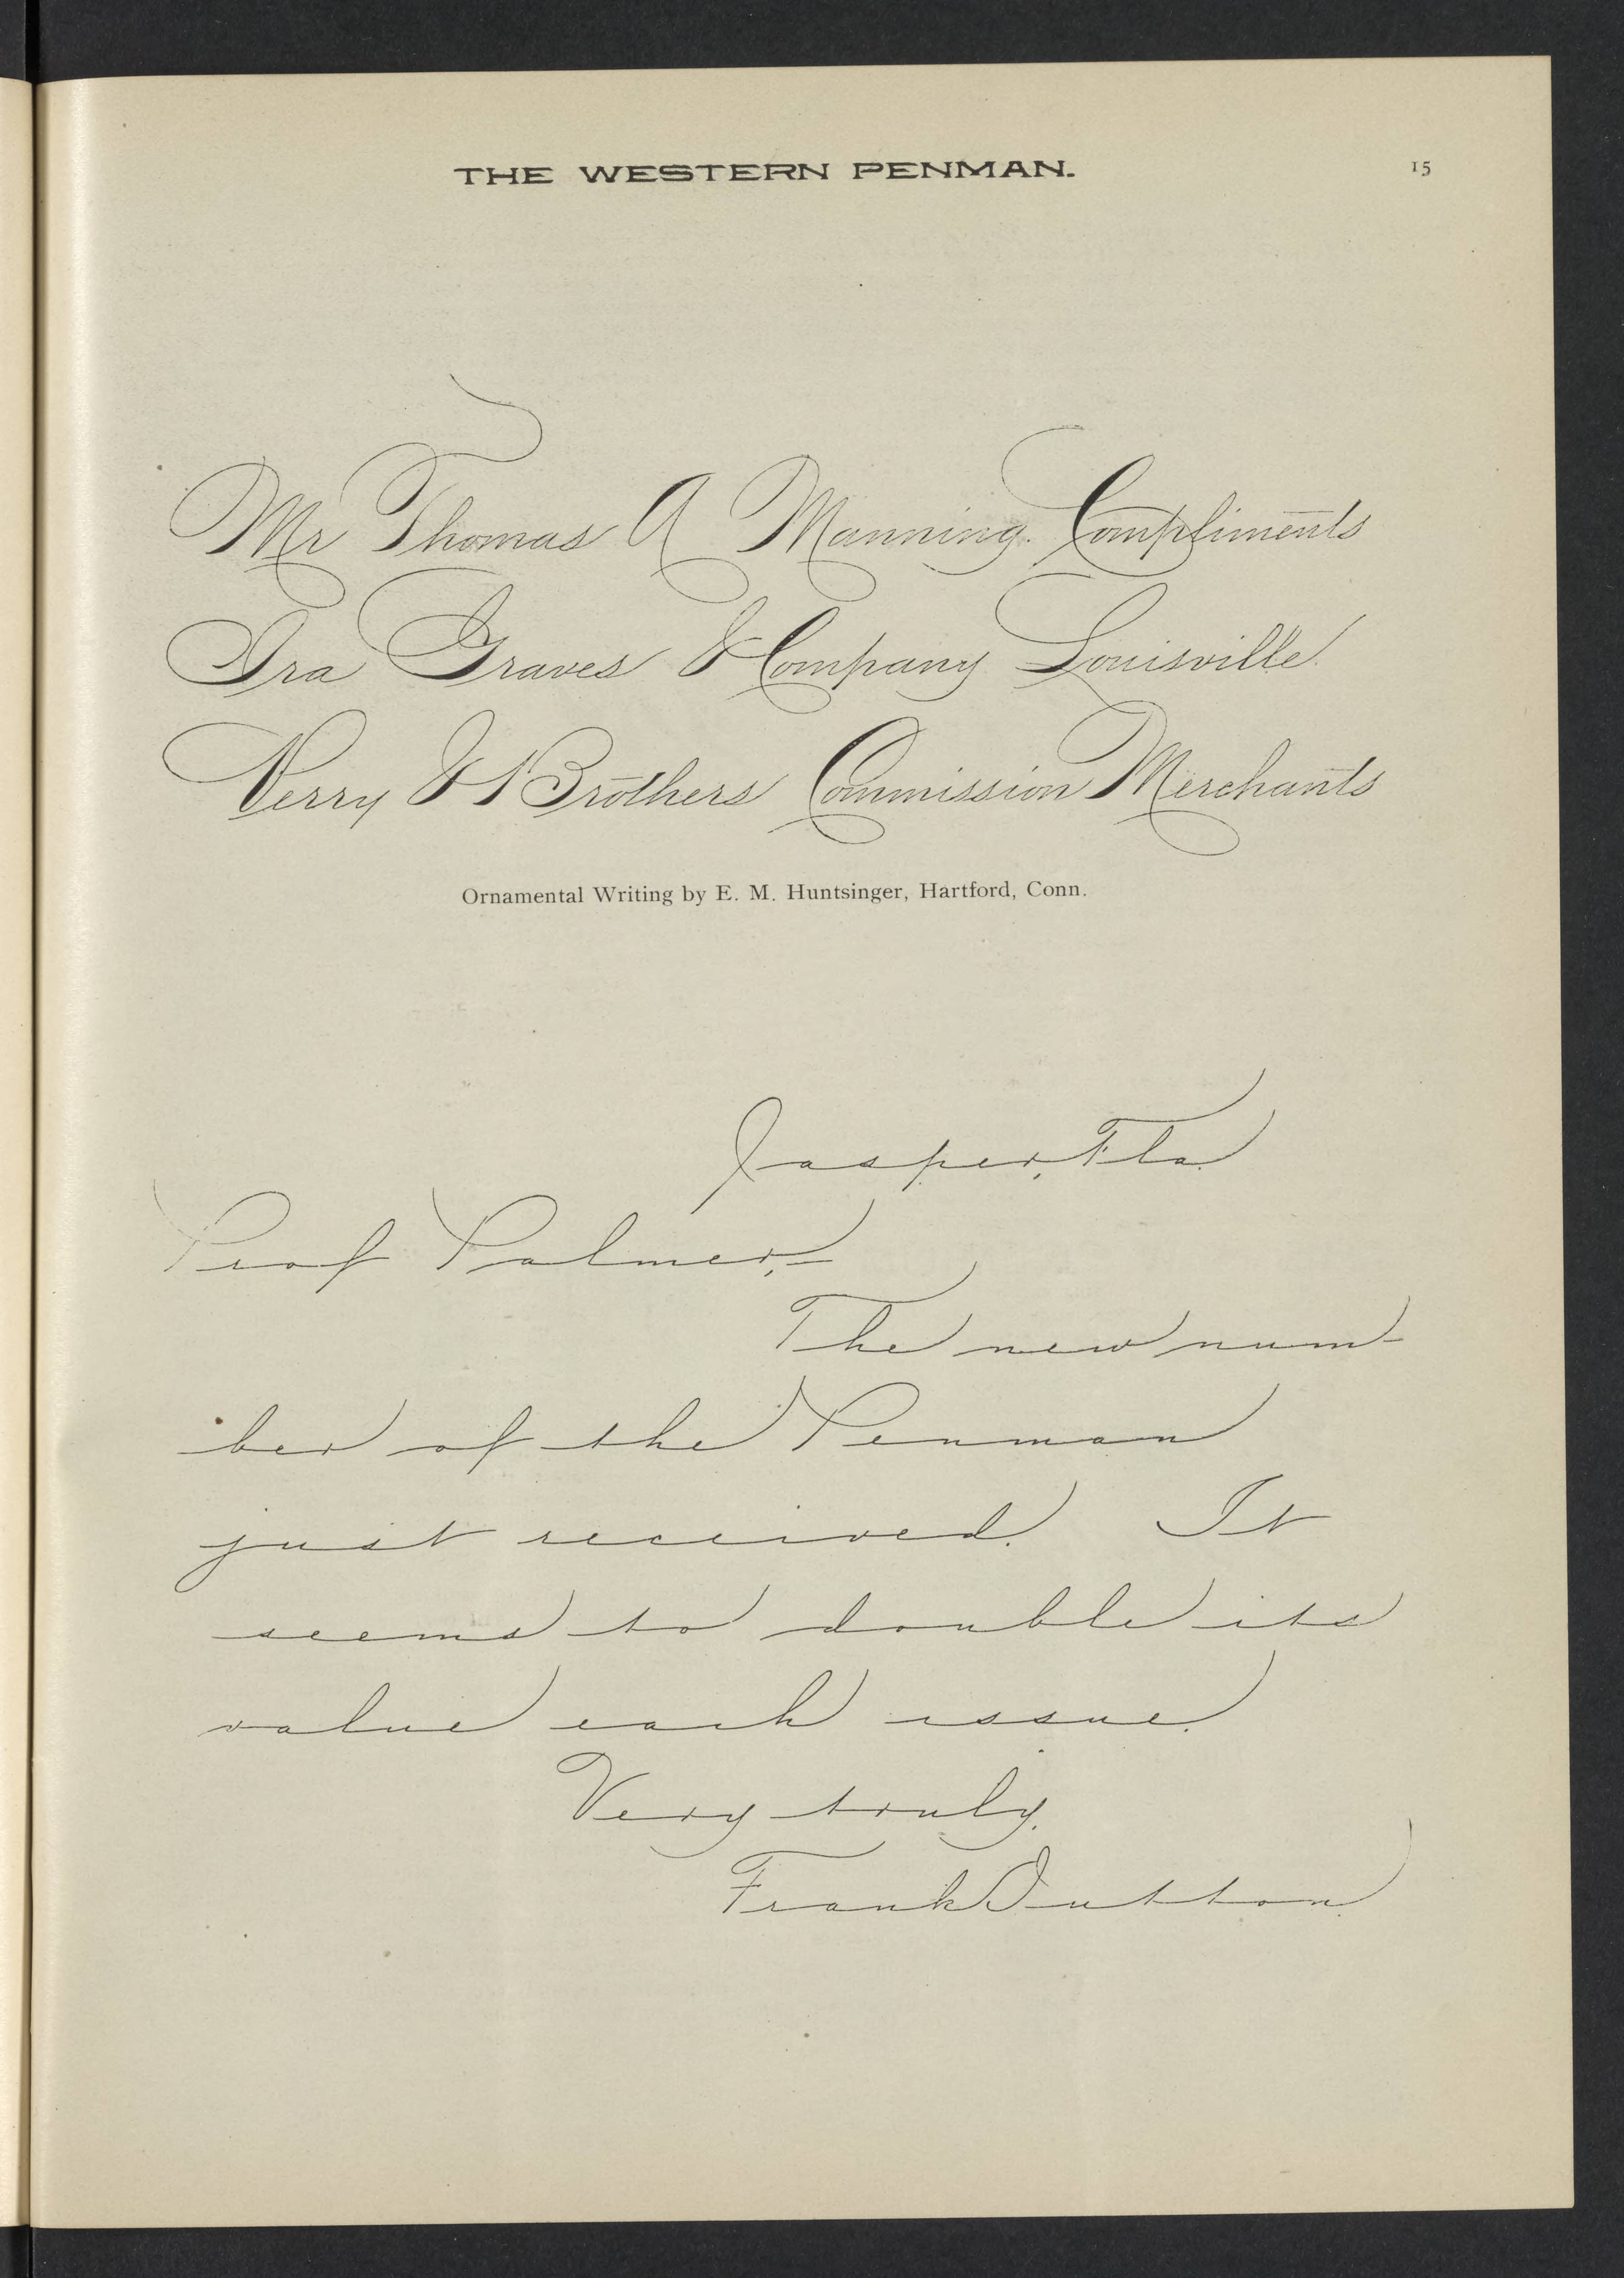 THE WESTERN PENMAN. 15
Mr Thomas A Manning. Compliments
Ira Graves & Company Louisville.
Perry & Brothers Commission Merchants
Ornamental Writing by E. M. Huntsinger, Hartford, Conn.
Jasper, Fla.
Prof Palmer,-
The new num-
ber of the Penman
just received. It
seems to double its
value each issue.
Very truly,
Frank Dutton.